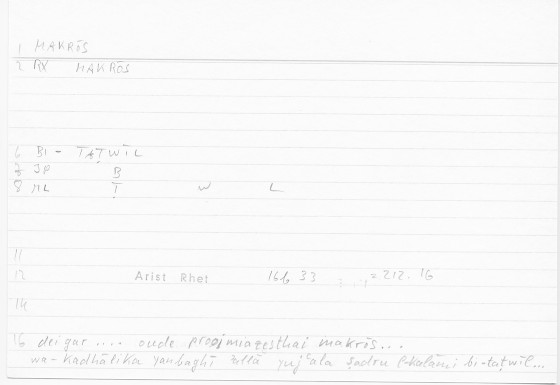 1 MAKRŌS
2 RX MAKRŌS
6 BI - TAṬWĪL
7 JP B
8 ML Ṭ W L
11
12 Arist Rhet 16b 33 = 212. 16
14
16 dei gar .... oude prooimiazesthai makrōs...
wa-kadhālika yanbaghī allā yujʿala ṣadru l-kalāmi bi-taṭwīl...